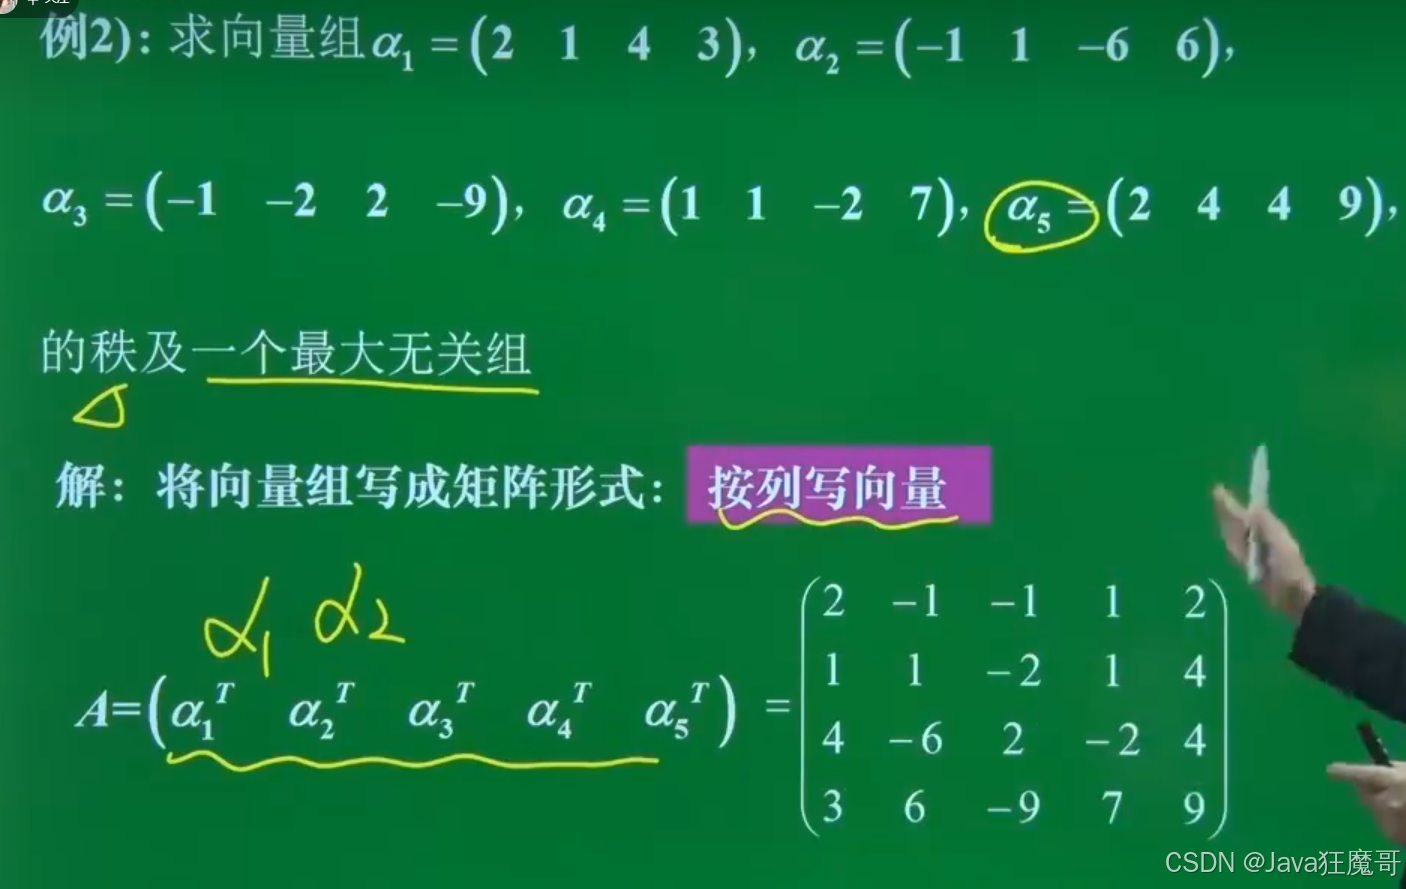 例2)：求向量组α₁ = (2 1 4 3)，α₂ = (−1 1 −6 6)，
α₃ = (−1 −2 2 −9)，α₄ = (1 1 −2 7)，α₅ = (2 4 4 9)，
的秩及一个最大无关组
解：将向量组写成矩阵形式：按列写向量
α₁ α₂
A=(α₁ᵀ α₂ᵀ α₃ᵀ α₄ᵀ α₅ᵀ) =
2 −1 −1 1 2
1 1 −2 1 4
4 −6 2 −2 4
3 6 −9 7 9
CSDN @Java狂魔哥